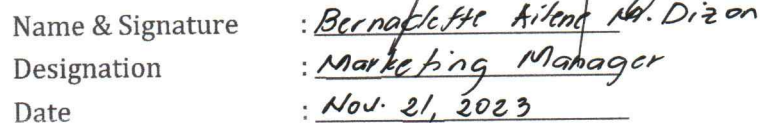 Name & Signature : Bernadette Ailene M. Dizon
Designation : Marketing Manager
Date : Nov. 21, 2023